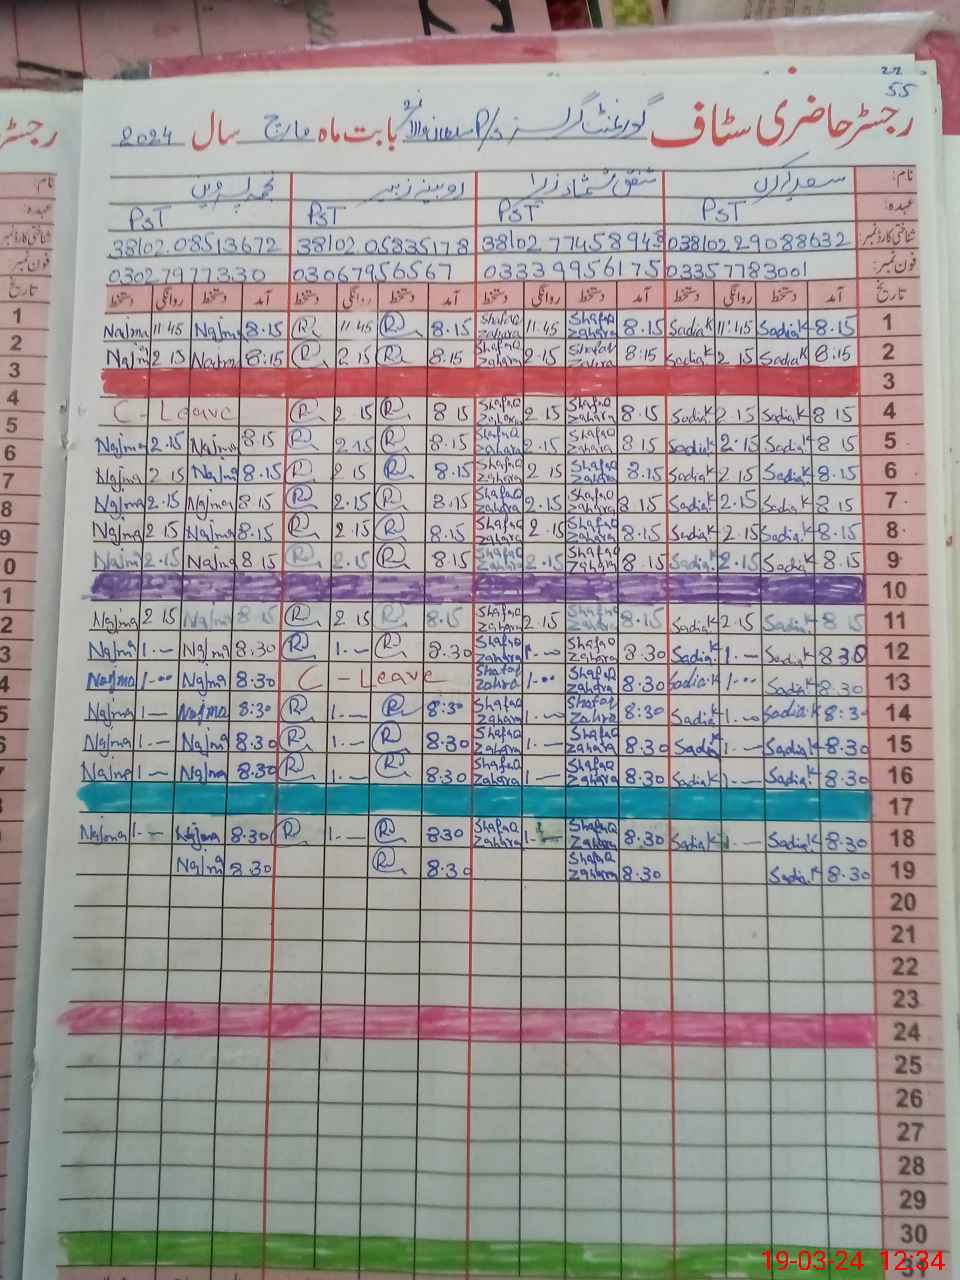 55
رجسٹر حاضری سٹاف گورنمنٹ گرلز بابت ماہ مارچ سال 2024
نام: سعدیہ کرن شفق شہزاد زہرا روبینہ زبیر نجمہ پروین
عہدہ: PST PST PST PST
شناختی کارڈ نمبر 38102 29088632 38102 7745894 38102 05835178 38102 08513672
فون نمبر: 03357783001 03339956175 03067956567 03027977330
تاریخ آمد دستخط روانگی دستخط آمد دستخط روانگی دستخط آمد دستخط روانگی دستخط آمد دستخط روانگی دستخط
1 Najma 11:45 Najma 8.15 R 11:45 R 8.15 Shafaq Zahara 11:45 Shafaq Zahara 8.15 Sadia K 11:45 Sadia K 8.15 1
2 Najma 2 15 Najma 8:15 R 2 15 R 8:15 Shafaq Zahara 2.15 Shafaq Zahara 8:15 Sadia K 2 15 Sadia K 8:15 2
3 3
4 C - Leave R 2 15 R 8 15 Shafaq Zahara 2 15 Shafaq Zahara 8.15 Sadia K 2.15 Sadia K 8 15 4
5 Najma 2.15 Najma 8 15 R 2 15 R 8.15 Shafaq Zahara 2.15 Shafaq Zahara 8 15 Sadia K 2.15 Sadia K 8 15 5
6 Najma 2 15 Najma 8.15 R 2 15 R 8.15 Shafaq Zahara 2 15 Shafaq Zahara 8.15 Sadia K 2 15 Sadia K 8.15 6
7 Najma 2.15 Najma 8 15 R 2.15 R 8.15 Shafaq Zahara 2.15 Shafaq Zahara 8 15 Sadia K 2.15 Sadia K 8 15 7
8 Najma 2 15 Najma 8.15 R 2 15 R 8.15 Shafaq Zahara 2.15 Shafaq Zahara 8.15 Sadia K 2 15 Sadia K 8.15 8
9 Najma 2.15 Najma 8 15 R 2.15 R 8.15 Shafaq Zahara 2.15 Shafaq Zahara 8.15 Sadia K 2.15 Sadia K 8.15 9
0 10
1 Najma 2 15 Najma 8 15 R 2 15 R 8.15 Shafaq Zahara 2 15 Shafaq Zahara 8.15 Sadia K 2 15 Sadia K 8 15 11
2 Najma 1.— Najma 8.30 R 1.— R 8.30 Shafaq Zahara 1.— Shafaq Zahara 8.30 Sadia K 1.— Sadia K 8 30 12
3 Najma 1-.. Najma 8.30 C - Leave Shafaq Zahra 1-.. Shafaq Zahara 8.30 Sadia K 1-.. Sadia K 8.30 13
4 Najma 1— Najma 8:30 R 1.— R 8:30 Shafaq Zahara 1.— Shafaq Zahra 8:30 Sadia K 1.— Sadia K 8:30 14
5 Najma 1.— Najma 8.30 R 1.— R 8.30 Shafaq Zahara 1.— Shafaq Zahara 8.30 Sadia K 1.— Sadia K 8.30 15
6 Najma 1— Najma 8.30 R 1.— R 8.30 Shafaq Zahara 1— Shafaq Zahara 8.30 Sadia K 1.— Sadia K 8.30 16
7 17
Najma 1.— Najma 8.30 R 1.— R 8.30 Shafaq Zahara 1.— Shafaq Zahara 8.30 Sadia K 1.— Sadia K 8.30 18
Najma 8.30 R 8.30 Shafaq Zahara 8.30 Sadia K 8.30 19
20
21
22
23
24
25
26
27
28
29
30
19-03-24 12:34